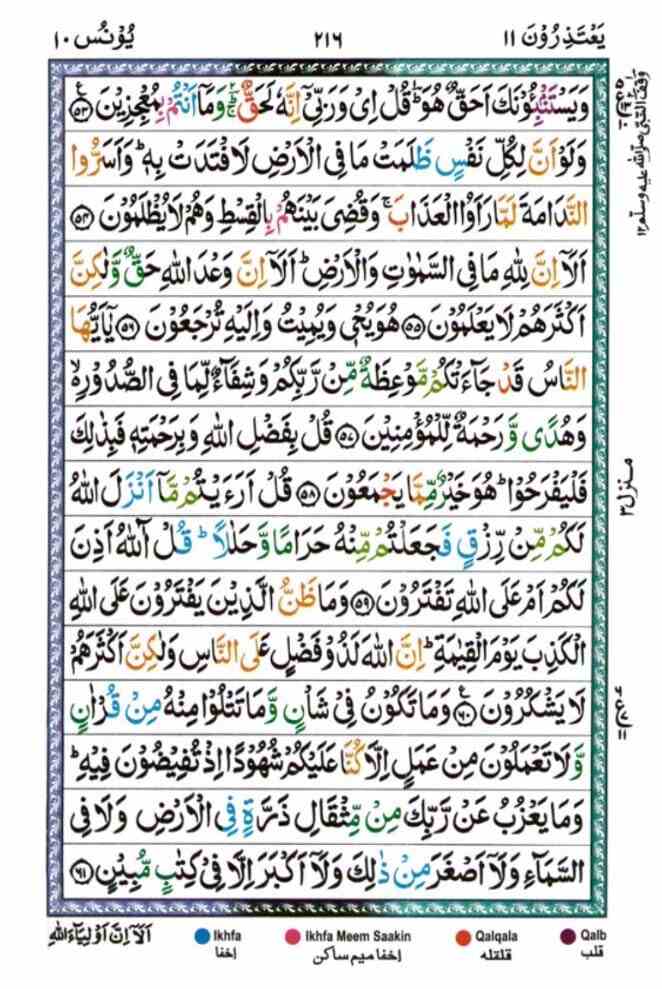 یَعْتَذِرُوْنَ ۱۱
۲۱۶
یُوْنُس ۱۰
وَیَسْتَنْۢبِئُوْنَكَ اَحَقٌّ هُوَ ؕ قُلْ اِیْ وَرَبِّیْۤ اِنَّهٗ لَحَقٌّ ؔؕ وَمَاۤ اَنْتُمْ بِمُعْجِزِیْنَ ۟۠ ﴿۵۳﴾
وَلَوْ اَنَّ لِكُلِّ نَفْسٍ ظَلَمَتْ مَا فِی الْاَرْضِ لَافْتَدَتْ بِهٖ ؕ وَاَسَرُّوا
النَّدَامَةَ لَمَّا رَاَوُا الْعَذَابَ ۚ وَقُضِیَ بَیْنَهُمْ بِالْقِسْطِ وَهُمْ لَا یُظْلَمُوْنَ ﴿۵۴﴾
اَلَاۤ اِنَّ لِلّٰهِ مَا فِی السَّمٰوٰتِ وَالْاَرْضِ ؕ اَلَاۤ اِنَّ وَعْدَ اللّٰهِ حَقٌّ وَّلٰكِنَّ
اَكْثَرَهُمْ لَا یَعْلَمُوْنَ ﴿۵۵﴾ هُوَ یُحْیٖ وَیُمِیْتُ وَاِلَیْهِ تُرْجَعُوْنَ ﴿۵۶﴾ یٰۤاَیُّهَا
النَّاسُ قَدْ جَآءَتْكُمْ مَّوْعِظَةٌ مِّنْ رَّبِّكُمْ وَشِفَآءٌ لِّمَا فِی الصُّدُوْرِ ۙ۬
وَهُدًی وَّرَحْمَةٌ لِّلْمُؤْمِنِیْنَ ﴿۵۷﴾ قُلْ بِفَضْلِ اللّٰهِ وَبِرَحْمَتِهٖ فَبِذٰلِكَ
فَلْیَفْرَحُوْا ؕ هُوَ خَیْرٌ مِّمَّا یَجْمَعُوْنَ ﴿۵۸﴾ قُلْ اَرَءَیْتُمْ مَّاۤ اَنْزَلَ اللّٰهُ
لَكُمْ مِّنْ رِّزْقٍ فَجَعَلْتُمْ مِّنْهُ حَرَامًا وَّحَلٰلًا ؕ قُلْ آٰللّٰهُ اَذِنَ
لَكُمْ اَمْ عَلَی اللّٰهِ تَفْتَرُوْنَ ﴿۵۹﴾ وَمَا ظَنُّ الَّذِیْنَ یَفْتَرُوْنَ عَلَی اللّٰهِ
الْكَذِبَ یَوْمَ الْقِیٰمَةِ ؕ اِنَّ اللّٰهَ لَذُوْ فَضْلٍ عَلَی النَّاسِ وَلٰكِنَّ اَكْثَرَهُمْ
لَا یَشْكُرُوْنَ ۟۠ ﴿۶۰﴾ وَمَا تَكُوْنُ فِیْ شَاْنٍ وَّمَا تَتْلُوْا مِنْهُ مِنْ قُرْاٰنٍ
وَّلَا تَعْمَلُوْنَ مِنْ عَمَلٍ اِلَّا كُنَّا عَلَیْكُمْ شُهُوْدًا اِذْ تُفِیْضُوْنَ فِیْهِ ؕ
وَمَا یَعْزُبُ عَنْ رَّبِّكَ مِنْ مِّثْقَالِ ذَرَّةٍ فِی الْاَرْضِ وَلَا فِی
السَّمَآءِ وَلَاۤ اَصْغَرَ مِنْ ذٰلِكَ وَلَاۤ اَكْبَرَ اِلَّا فِیْ كِتٰبٍ مُّبِیْنٍ ﴿۶۱﴾
وقف النبی صلی الله علیه وسلم ۱۲
منزل ۳
اَلَاۤ اِنَّ اَوْلِیَآءَ اللّٰهِ
Ikhfa
اخفا
Ikhfa Meem Saakin
إخفا میم ساكن
Qalqala
قلقله
Qalb
قلب